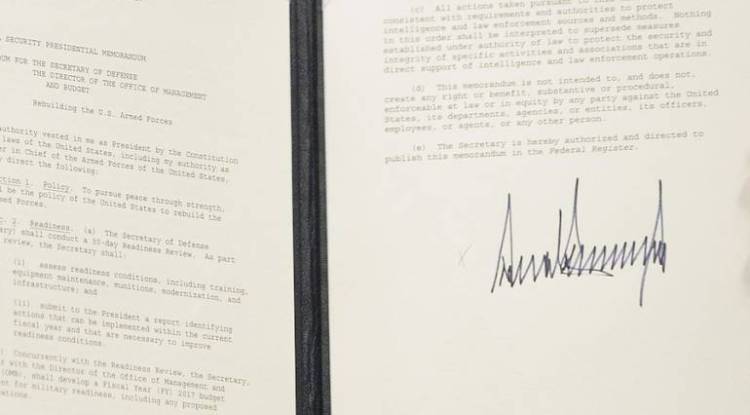 SECURITY PRESIDENTIAL MEMORANDUM
FOR THE SECRETARY OF DEFENSE
THE DIRECTOR OF THE OFFICE OF MANAGEMENT
AND BUDGET
Rebuilding the U.S. Armed Forces
authority vested in me as President by the Constitution
laws of the United States, including my authority as
in Chief of the Armed Forces of the United States,
direct the following:
Section 1. Policy. To pursue peace through strength,
be the policy of the United States to rebuild the
Forces.
2. Readiness. (a) The Secretary of Defense
shall conduct a 30-day Readiness Review. As part
review, the Secretary shall:
(i) assess readiness conditions, including training,
equipment maintenance, munitions, modernization, and
infrastructure; and
(ii) submit to the President a report identifying
actions that can be implemented within the current
fiscal year and that are necessary to improve
readiness conditions.
Concurrently with the Readiness Review, the Secretary,
with the Director of the Office of Management and
(OMB), shall develop a Fiscal Year (FY) 2017 budget
for military readiness, including any proposed
(c) All actions taken pursuant to this
consistent with requirements and authorities to protect
intelligence and law enforcement sources and methods. Nothing
in this order shall be interpreted to supersede measures
established under authority of law to protect the security and
integrity of specific activities and associations that are in
direct support of intelligence and law enforcement operations.
(d) This memorandum is not intended to, and does not,
create any right or benefit, substantive or procedural,
enforceable at law or in equity by any party against the United
States, its departments, agencies, or entities, its officers,
employees, or agents, or any other person.
(e) The Secretary is hereby authorized and directed to
publish this memorandum in the Federal Register.
X